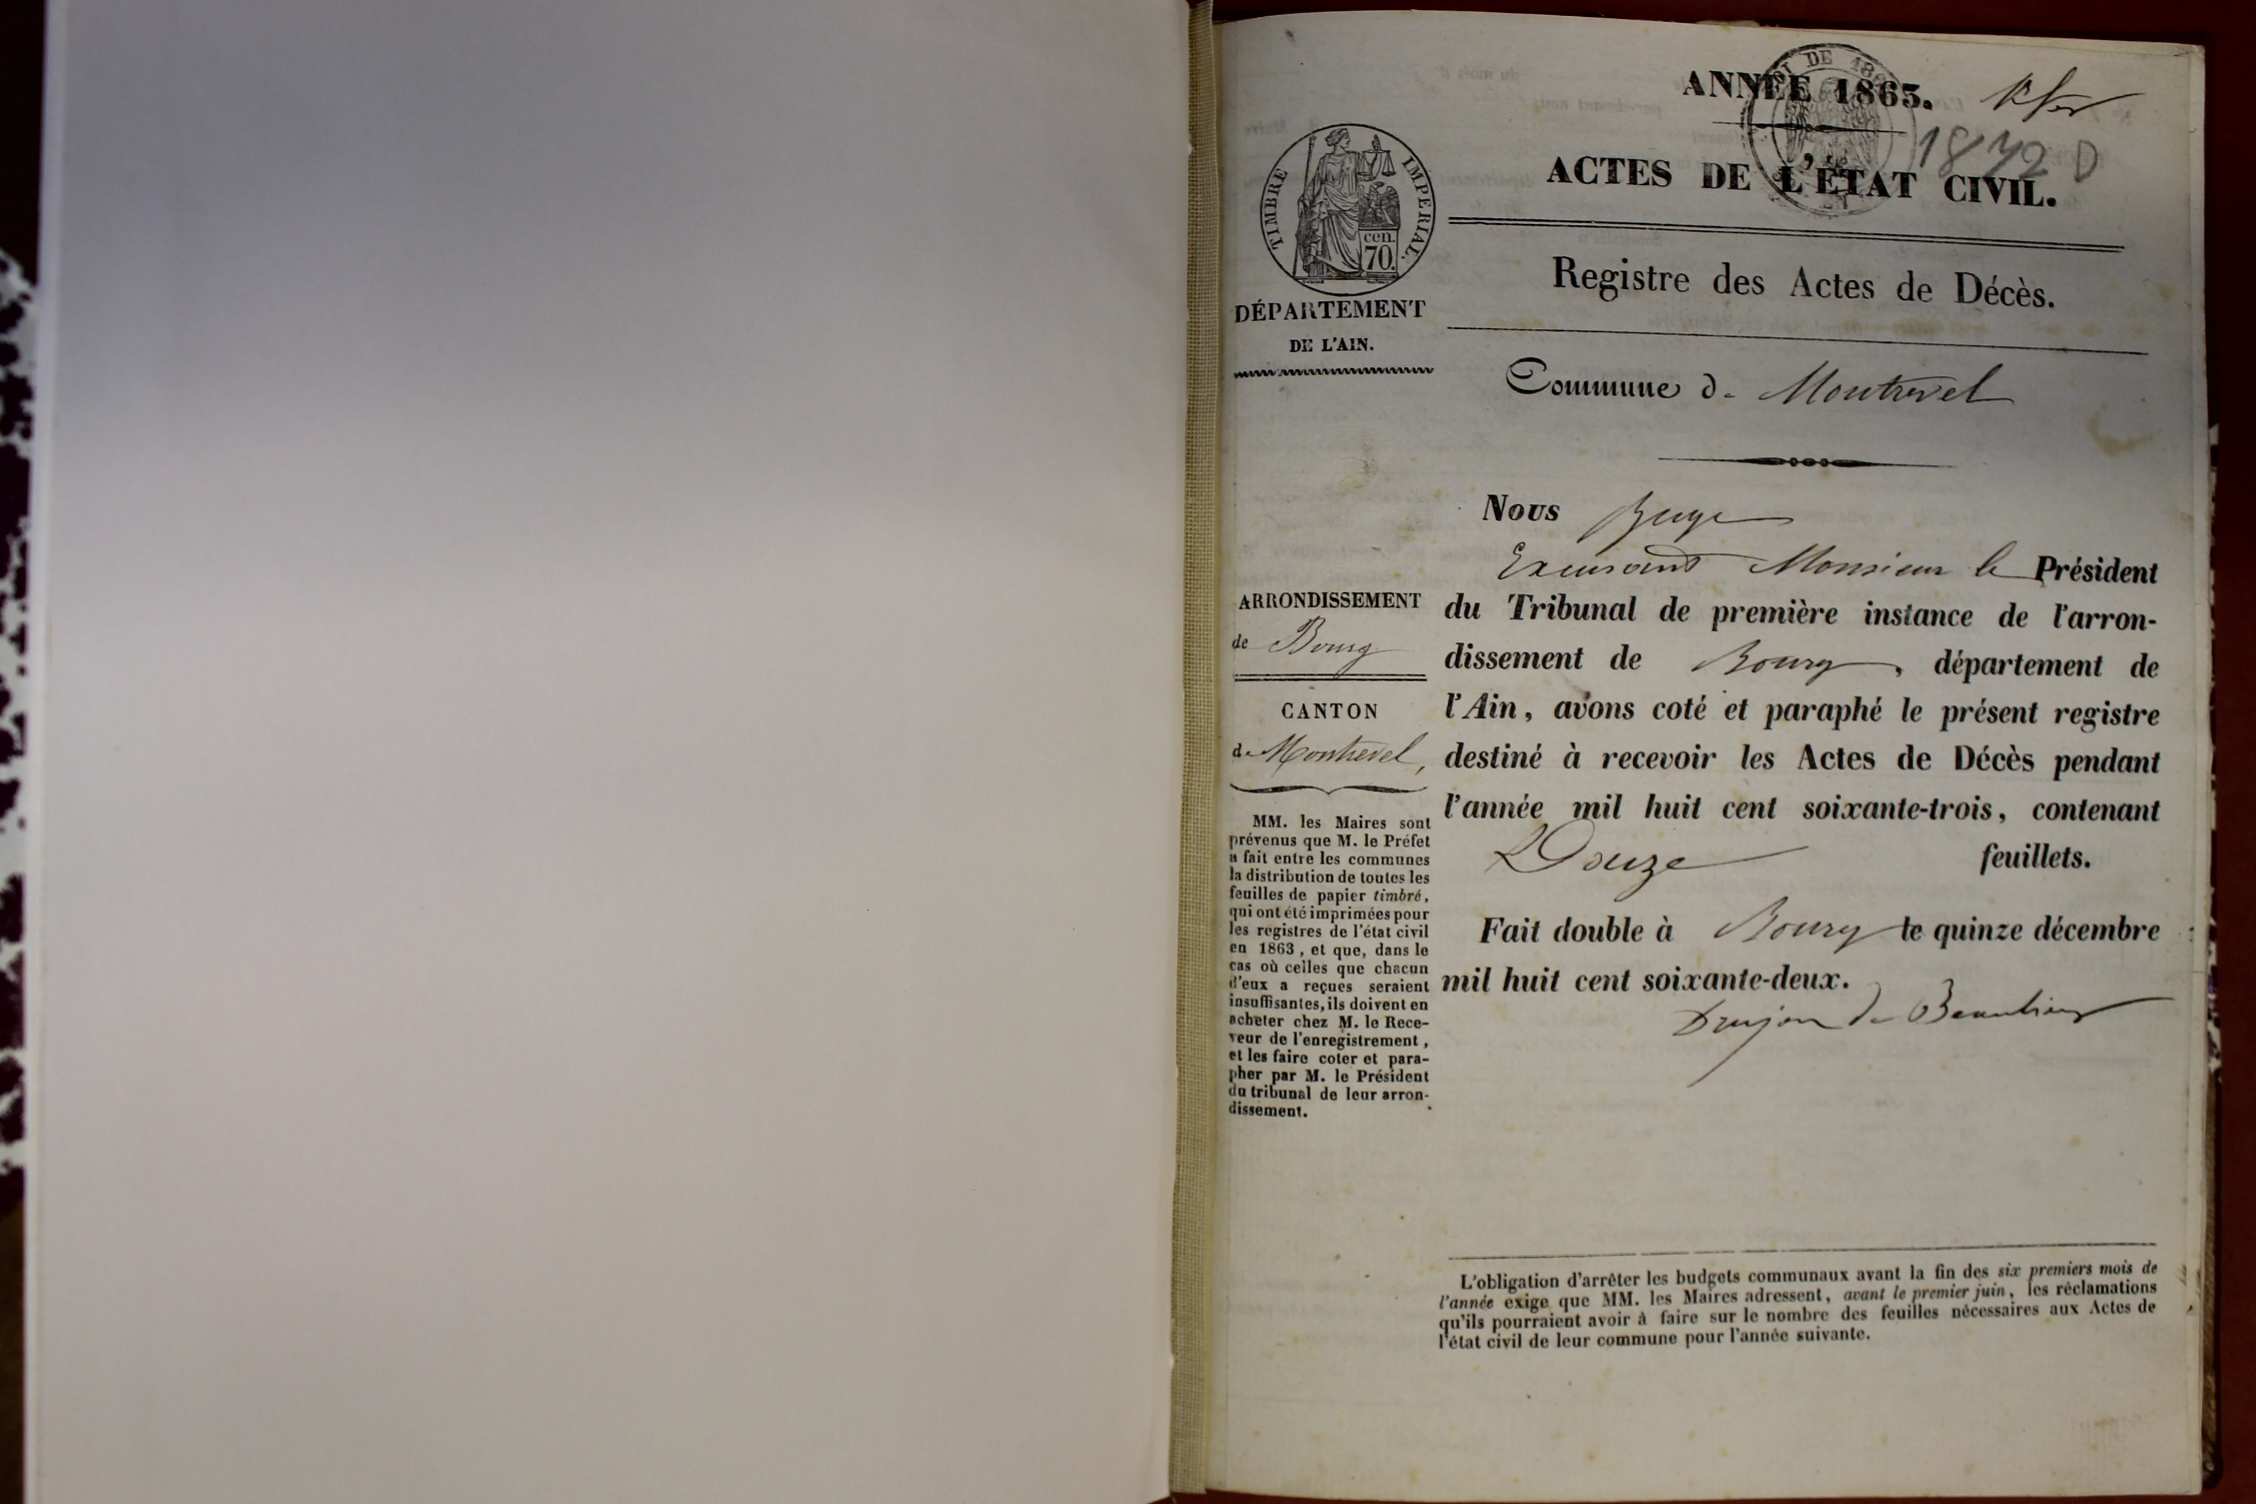 ANNÉE 1863.
1832 D
ACTES DE L'ÉTAT CIVIL.
TIMBRE IMPERIAL.
cen.
70.
DÉPARTEMENT
DE L'AIN.
Registre des Actes de Décès.
Commune de Montrevel
ARRONDISSEMENT
de Bourg
CANTON
de Montrevel,
MM. les Maires sont
prévenus que M. le Préfet
a fait entre les communes
la distribution de toutes les
feuilles de papier timbré,
qui ont été imprimées pour
les registres de l'état civil
en 1863, et que, dans le
cas où celles que chacun
d'eux a reçues seraient
insuffisantes, ils doivent en
acheter chez M. le Rece-
veur de l'enregistrement,
et les faire coter et para-
pher par M. le Président
du tribunal de leur arron-
dissement.
Nous
Monsieur le Président
du Tribunal de première instance de l'arron-
dissement de Bourg, département de
l'Ain, avons coté et paraphé le présent registre
destiné à recevoir les Actes de Décès pendant
l'année mil huit cent soixante-trois, contenant
Douze feuillets.
Fait double à Bourg le quinze décembre
mil huit cent soixante-deux.
Drujon de Beaulieu
L'obligation d'arrêter les budgets communaux avant la fin des six premiers mois de
l'année exige que MM. les Maires adressent, avant le premier juin, les réclamations
qu'ils pourraient avoir à faire sur le nombre des feuilles nécessaires aux Actes de
l'état civil de leur commune pour l'année suivante.